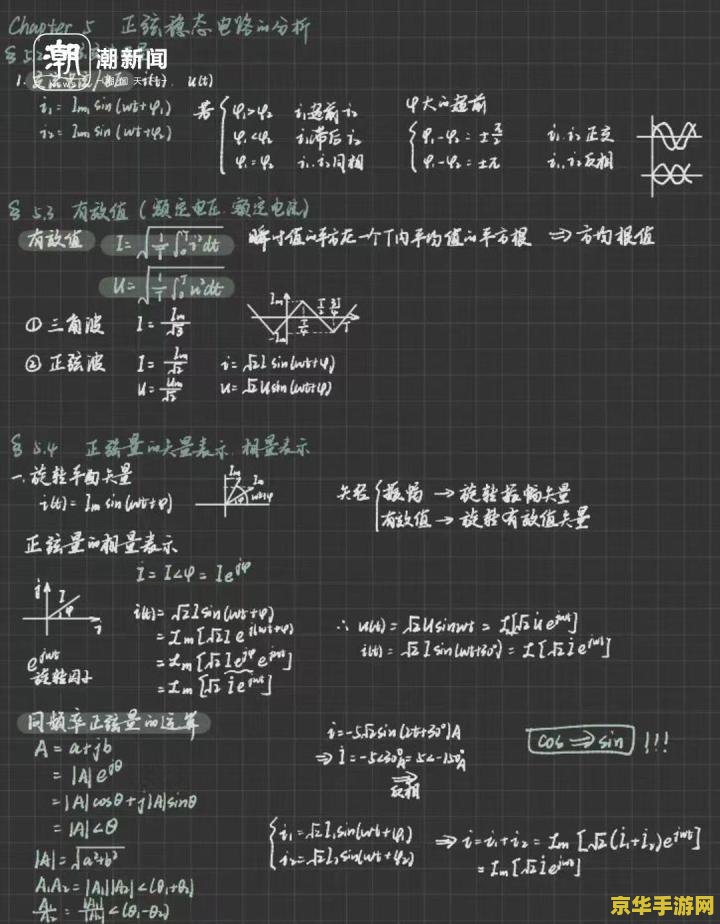 Chapter 5 正弦稳态电路的分析
§ 5.2
潮 潮新闻
NEWS
1. i(t). u(t)
i₁ = Im₁ sin(ωt+φ₁)
i₂ = Im sin(ωt+φ₂)
若 { φ₁>φ₂ i₁超前i₂
φ₁<φ₂ i₁滞后i₂
φ₁=φ₂ i₁.i₂同相
φ大的超前
{ φ₁-φ₂ = ±π/2 i₁.i₂正交
φ₁-φ₂ = ±π i₁.i₂反相
§ 5.3 有效值 (额定电压.额定电流)
有效值 I = √(1/T ∫₀ᵀ i²dt) 瞬时值的平方在一个T内平均值的平方根 ⇒ 方均根值
U = √(1/T ∫₀ᵀ u²dt)
① 三角波 I = Im/√3
Im
-Im
T
② 正弦波 I = Im/√2 i = √2 I sin(ωt+φ)
U = Um/√2 u = √2 U sin(ωt+φ)
§ 5.4 正弦量的矢量表示.相量表示
一.旋转平面矢量
i(t) = Im sin(ωt+φ)
Im
Im
ωt+φ
矢径 { 振幅 → 旋转振幅矢量
有效值 → 旋转有效值矢量
正弦量的相量表示
İ = I∠φ = I e^jφ
j
I
φ
e^jωt
旋转因子
i(t) = √2 I sin(ωt+φ)
= Im[√2 I e^j(ωt+φ)]
= Im[√2 I e^jφ e^jωt]
= Im[√2 İ e^jωt]
∴ u(t) = √2 U sinωt = I[√2 U̇ e^jωt]
i(t) = √2 I sin(ωt+30°) = I[√2 İ e^jωt]
同频率正弦量的运算
A = a+jb
= |A| e^jθ
= |A|cosθ + j|A|sinθ
= |A|∠θ
|A| = √(a²+b²)
A₁A₂ = |A₁||A₂|∠(θ₁+θ₂)
A₁/A₂ = |A₁|/|A₂| ∠(θ₁-θ₂)
i = -5√2 sin(2t+30°)A
⇒ İ = -5∠30°A = 5∠-150°A
反相
cos ⇒ sin !!!
{ i₁ = √2 I₁ sin(ωt+φ₁)
i₂ = √2 I₂ sin(ωt+φ₂)
⇒ i = i₁+i₂ = Im[√2(İ₁+İ₂)e^jωt]
= Im[√2 İ e^jωt]
京华手游网